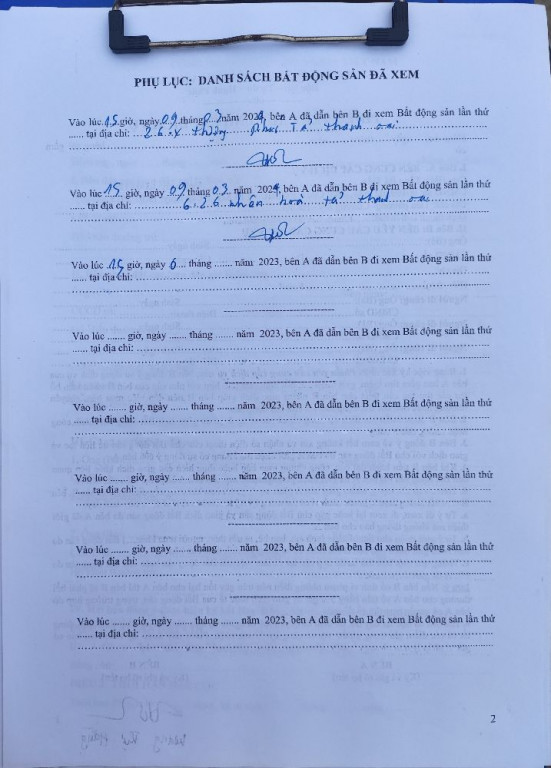 PHỤ LỤC: DANH SÁCH BẤT ĐỘNG SẢN ĐÃ XEM
Vào lúc 15 giờ, ngày 09 tháng 03 năm 2024, bên A đã dẫn bên B đi xem Bất động sản lần thứ
...... tại địa chỉ: 26.X
Vào lúc 15 giờ, ngày 09 tháng 03 năm 2024, bên A đã dẫn bên B đi xem Bất động sản lần thứ
...... tại địa chỉ: 6.26 nhân hoà tả thanh oai
Vào lúc 15 giờ, ngày 6 tháng ....... năm 2023, bên A đã dẫn bên B đi xem Bất động sản lần thứ
...... tại địa chỉ:
Vào lúc ....... giờ, ngày ....... tháng ....... năm 2023, bên A đã dẫn bên B đi xem Bất động sản lần thứ
...... tại địa chỉ:
Vào lúc ....... giờ, ngày ....... tháng ....... năm 2023, bên A đã dẫn bên B đi xem Bất động sản lần thứ
...... tại địa chỉ:
Vào lúc ....... giờ, ngày ....... tháng ....... năm 2023, bên A đã dẫn bên B đi xem Bất động sản lần thứ
...... tại địa chỉ:
Vào lúc ....... giờ, ngày ....... tháng ....... năm 2023, bên A đã dẫn bên B đi xem Bất động sản lần thứ
...... tại địa chỉ:
Vào lúc ....... giờ, ngày ....... tháng ....... năm 2023, bên A đã dẫn bên B đi xem Bất động sản lần thứ
...... tại địa chỉ:
2